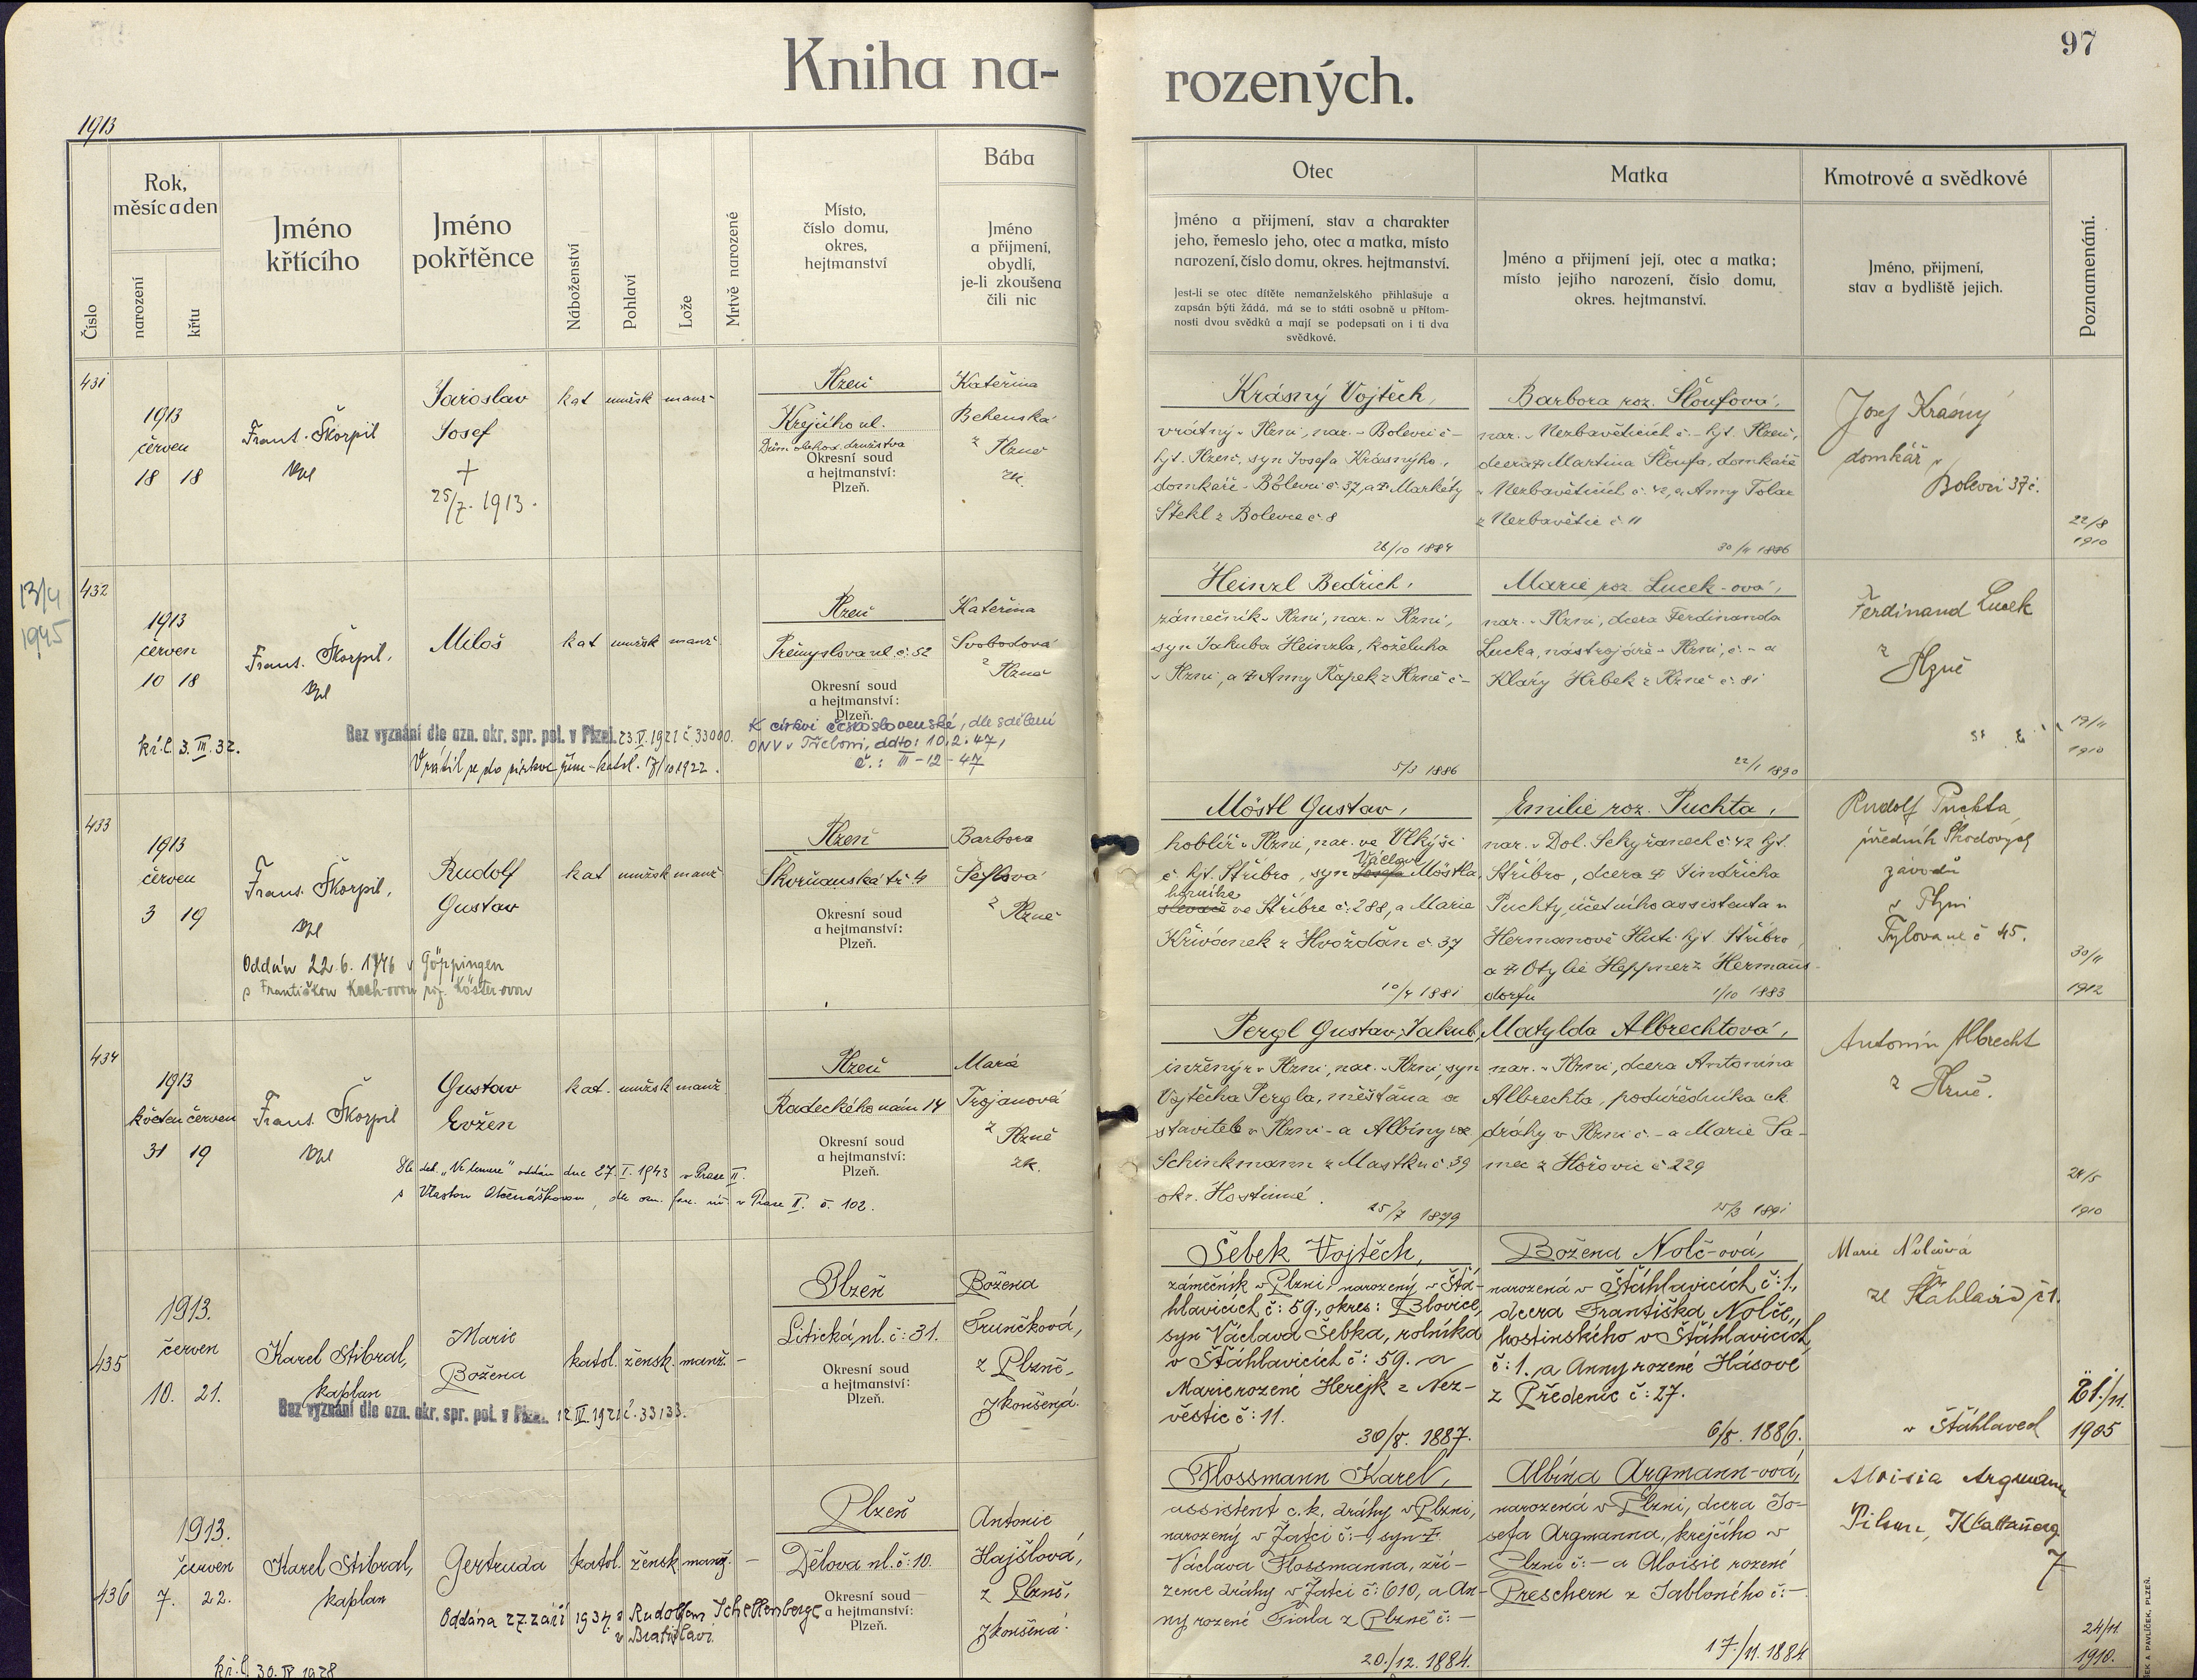 97
Kniha na- rozených.
1913
Číslo
Rok, měsíc a den
narození
křtu
Jméno křtícího
Jméno pokřtěnce
Náboženství
Pohlaví
Lože
Mrtvě narozené
Místo, číslo domu, okres, hejtmanství
Bába
Jméno a přijmení, obydlí, je-li zkoušena čili nic
Otec
Jméno a přijmení, stav a charakter
jeho, řemeslo jeho, otec a matka, místo
narození, číslo domu, okres. hejtmanství.
Jest-li se otec dítěte nemanželského přihlašuje a
zapsán býti žádá, má se to státi osobně u přítom-
nosti dvou svědků a mají se podepsati on i ti dva
svědkové.
Matka
Jméno a přijmení její, otec a matka;
místo jejího narození, číslo domu,
okres. hejtmanství.
Kmotrové a svědkové
Jméno, přijmení,
stav a bydliště jejich.
Poznamenání.
431
1913
červen
18 18
Frant. Škorpil
Jaroslav
Josef
+
25/7. 1913.
kat mužsk manž
Plzeň
Krejčího ul.
Okresní soud
a hejtmanství:
Plzeň.
Kateřina
z Plzně
zk.
Krásný Vojtěch,
vrátný v Plzni, nar. v Bolevci č –
hjt. Plzeň, syn Josefa Krásnýho,
domkaře v Bolevci č 37, a Markéty
Štekl z Bolevce č 8
26/10 1884
Barbora roz. Šloufová,
nar. v Nezbavěticích č. – hjt. Plzeň,
dcera Martina Šloufa, domkaře
v Nezbavěticích č. 42, a Anny Tolar
z Nezbavětic č 11
30/11 1886
Josef Krásný
domkář v
Bolevci 37 č.
22/8
1910
13/4
1945
432
1913
červen
10 18
Frant. Škorpil,
Miloš
kat mužsk manž
Plzeň
Přemyslova ul. č. 52
Okresní soud
a hejtmanství:
Plzeň.
Kateřina
Svobodová
z Plzně
kř. l. 3. III. 32.
Bez vyznání dle ozn. okr. spr. pol. v Plzni. 23. V. 1921 č 33000.
Vrátil se do církve řím-katol. 17/10 1922.
K církvi československé, dle sdělení
ONV v Třeboni, ddto: 10. 2. 47,
č.: III-12-47
Heinzl Bedřich,
zámečník v Plzni, nar. v Plzni,
syn Jakuba Heinzla, koželuha
v Plzni, a Anny Řapek z Plzně č –
5/3 1886
Marie roz. Lucek-ová,
nar. v Plzni, dcera Ferdinanda
Lucka, nástrojáře v Plzni, č. – a
Kláry Hrbek z Plzně č. 81
22/1 1890
Ferdinand Lucek
z
Plzně
19/11
1910
433
1913
červen
3 19
Frant. Škorpil,
Rudolf
Gustav
kat mužsk manž
Plzeň
Škvrňanská tř 4
Okresní soud
a hejtmanství:
Plzeň.
Barbora
z Plzně
Oddán 22. 6. 1946 v Göppingen
s Františkou Koch-ovou roz. Köster-ovou
Möstl Gustav,
hoblíř v Plzni, nar. ve Vlkýši
č hjt. Stříbro, syn Josefa Václava Möstla,
horníka
slevače ve Stříbře č. 288, a Marie
Křivánek z Hvožďan č 37
10/4 1881
Emilie roz. Puchta,
nar. v Dol. Sekyřanech č 42 hjt.
Stříbro, dcera Jindřicha
Puchty, účetního assistenta v
Heřmanově Huti hjt. Stříbro,
a Otylie Heppner z Hermanns-
dorfu
1/10 1883
Rudolf Puchta,
úředník Škodových
závodů
v Plzni
Tylova ul č 45.
30/11
1912
434
1913
květen červen
31 19
Frant. Škorpil
Gustav
Evžen
kat. mužsk manž
Plzeň
Radeckého nám 14
Okresní soud
a hejtmanství:
Plzeň.
Marie
Trojanová
z Plzně
zk.
oddán dne 27. I. 1943 v Praze II.
s Vlastou Otčenáškovou, dle ozn. far. úř. v Praze II. č. 102.
Pergl Gustav, Jakub,
inženýr v Plzni, nar. v Plzni, syn
Vojtěcha Pergla, měšťana a
stavitele v Plzni – a Albíny
Schinkmann z Mastku č. 39
okr. Hostinné.
25/7 1879
Matylda Albrechtová,
nar. v Plzni, dcera Antonína
Albrechta, podúředníka ck
dráhy v Plzni č. – a Marie Sa-
mec z Hořovic č 229
15/3 1891
Antonín Albrecht
z Plzně.
24/5
1910
435
1913.
červen
10. 21.
Karel Stibral,
kaplan
Marie
Božena
katol. žensk. manž. –
Plzeň
Litická ul. č: 31.
Okresní soud
a hejtmanství:
Plzeň.
Božena
Trunčková,
z Plzně,
zkoušená.
Bez vyznání dle ozn. okr. spr. pol. v Plzni. 12. IV. 1921 č. 33133.
Šebek Vojtěch,
zámečník v Plzni, narozený v Štá-
hlavicích č: 59., okres: Blovice,
syn Václava Šebka, rolníka
v Štáhlavicích č: 59. a
Marie rozené Herejk z Nez-
věstic č: 11.
30/8. 1887.
Božena Nolč-ová,
narozená v Štáhlavicích č: 1.,
dcera Františka Nolče,
hostinského v Štáhlavicích,
č: 1. a Anny rozené Hásové
z Předenic č: 27.
6/8. 1886.
Marie Nolčová
ze Štáhlavic č 1.
21./11.
v Štáhlavech 1905
436
1913.
červen
7. 22.
Karel Stibral,
kaplan
Gertruda
katol. žensk. manž. –
Plzeň
Dělova ul. č: 10.
Okresní soud
a hejtmanství:
Plzeň.
Antonie
Hajšlová,
z Plzně,
zkoušená.
Oddána 27. září 1934 s Rudolfem Schellenberger
v Bratislavi.
kř. l. 30. IV 1928
Flossmann Karel,
assistent c. k. dráhy v Plzni,
narozený v Žatci č: –, syn
Václava Flossmanna, zří-
zence dráhy v Žatci č: 610, a An-
ny rozené Fiala z Plzně č: –
20./12. 1884.
Albína Argmann-ová,
narozená v Plzni, dcera Jo-
sefa Argmanna, krejčího v
Plzni č: – a Aloisie rozené
Preschern z Jabloného č: –
17./11. 1884
Aloisia Argmann
Pilsen, Klattauerg.
7
24/11.
1910.